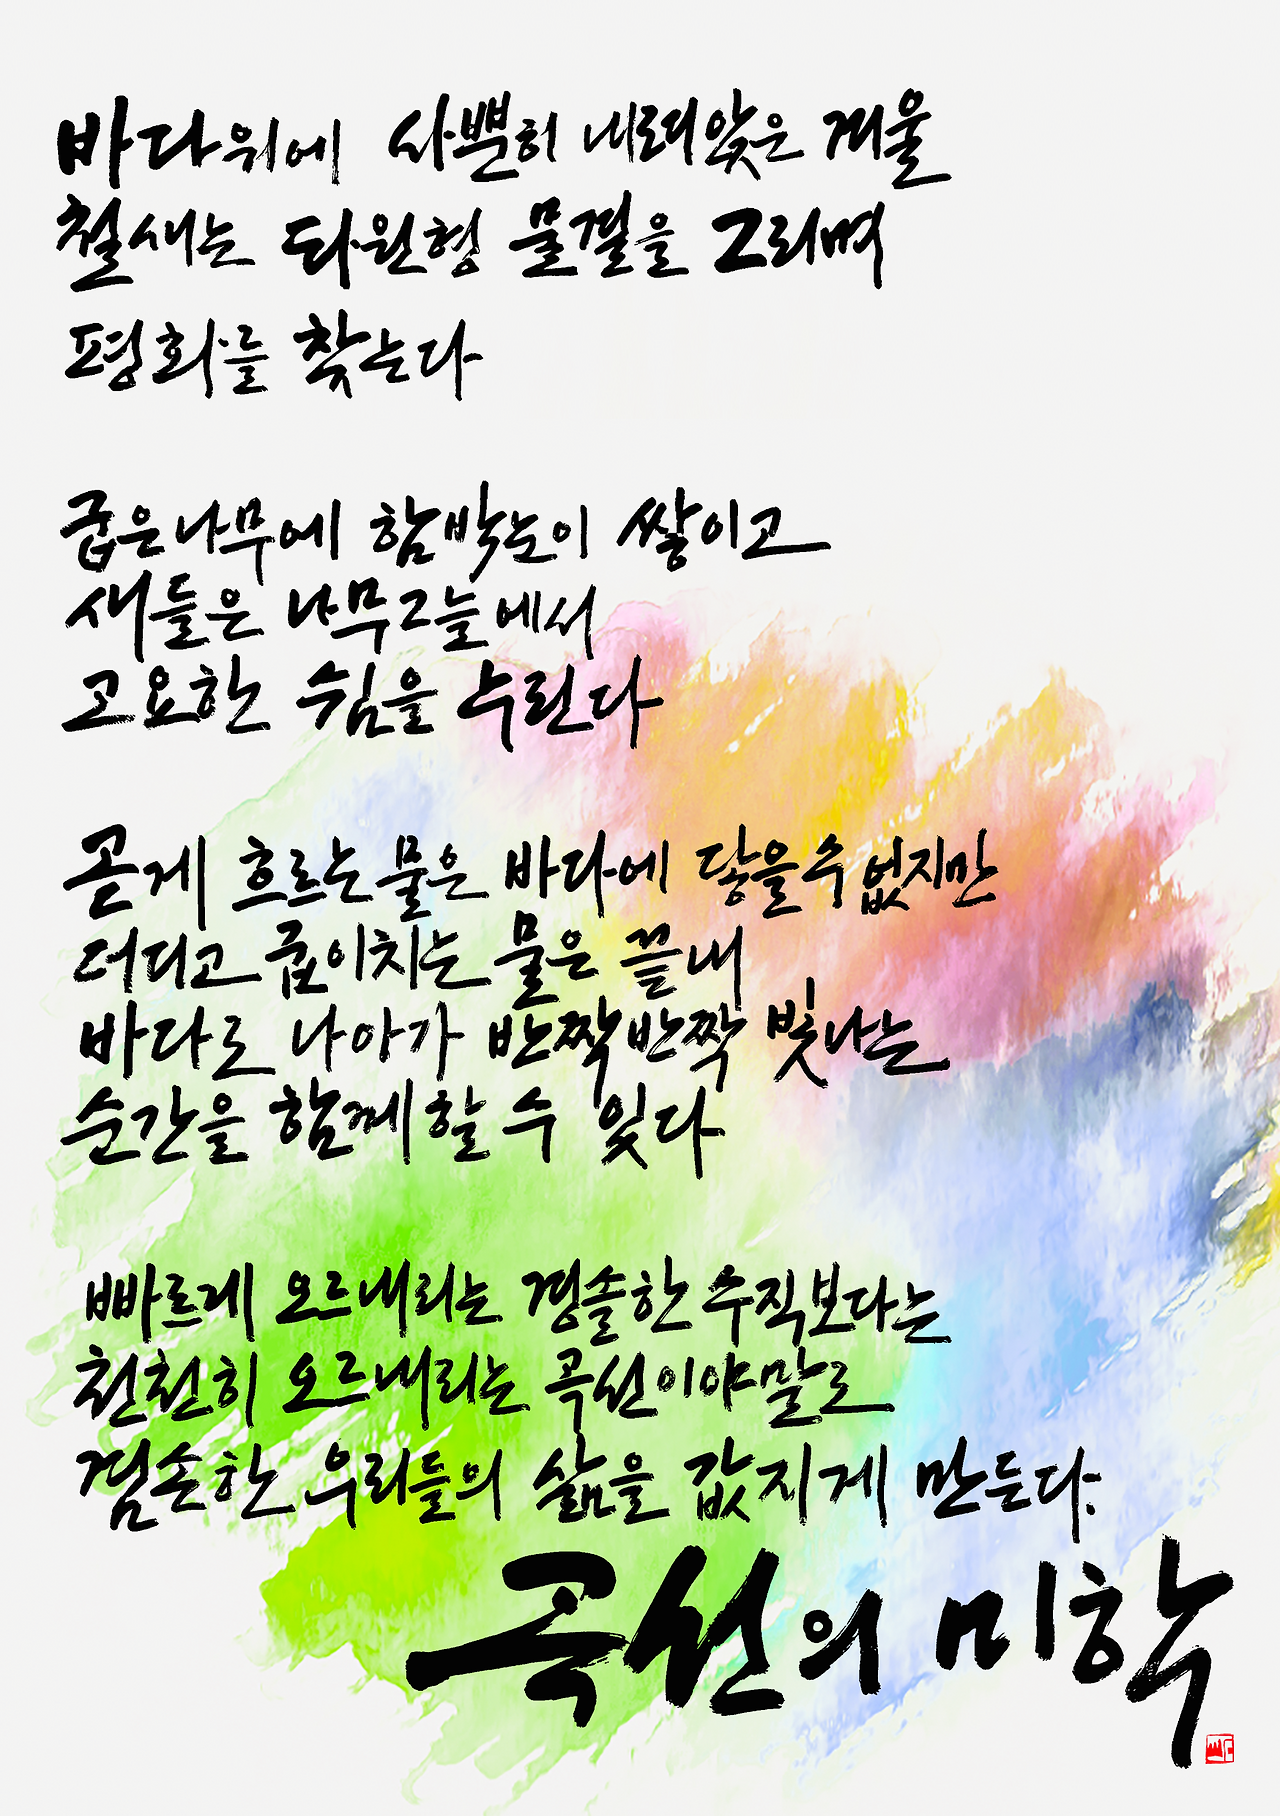 바다위에 사뿐히 내려앉은 겨울
철새는 타원형 물결을 그리며
평화를 찾는다
굽은나무에 함박눈이 쌓이고
새들은 나무그늘에서
고요한 쉼을 누린다
곧게 흐르는 물은 바다에 닿을 수 없지만
더디고 굽이치는 물은 끝내
바다로 나아가 반짝반짝 빛나는
순간을 함께 할 수 있다
빠르게 오르내리는 경솔한 수직보다는
천천히 오르내리는 곡선이야말로
겸손한 우리들의 삶을 값지게 만든다.
곡선의 미학